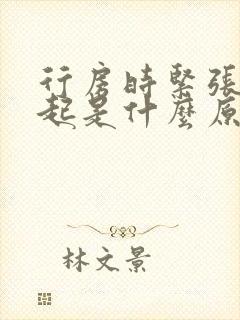 行房時緊張
起是什麼原
林文景